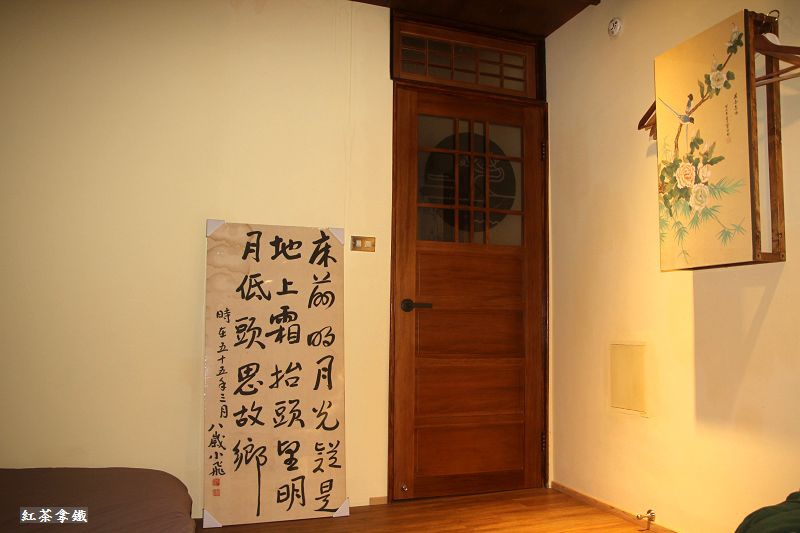 床前明月光疑是
地上霜抬頭望明
月低頭思故鄉
時在五十五年三月
八歲小飛
紅茶拿鐵